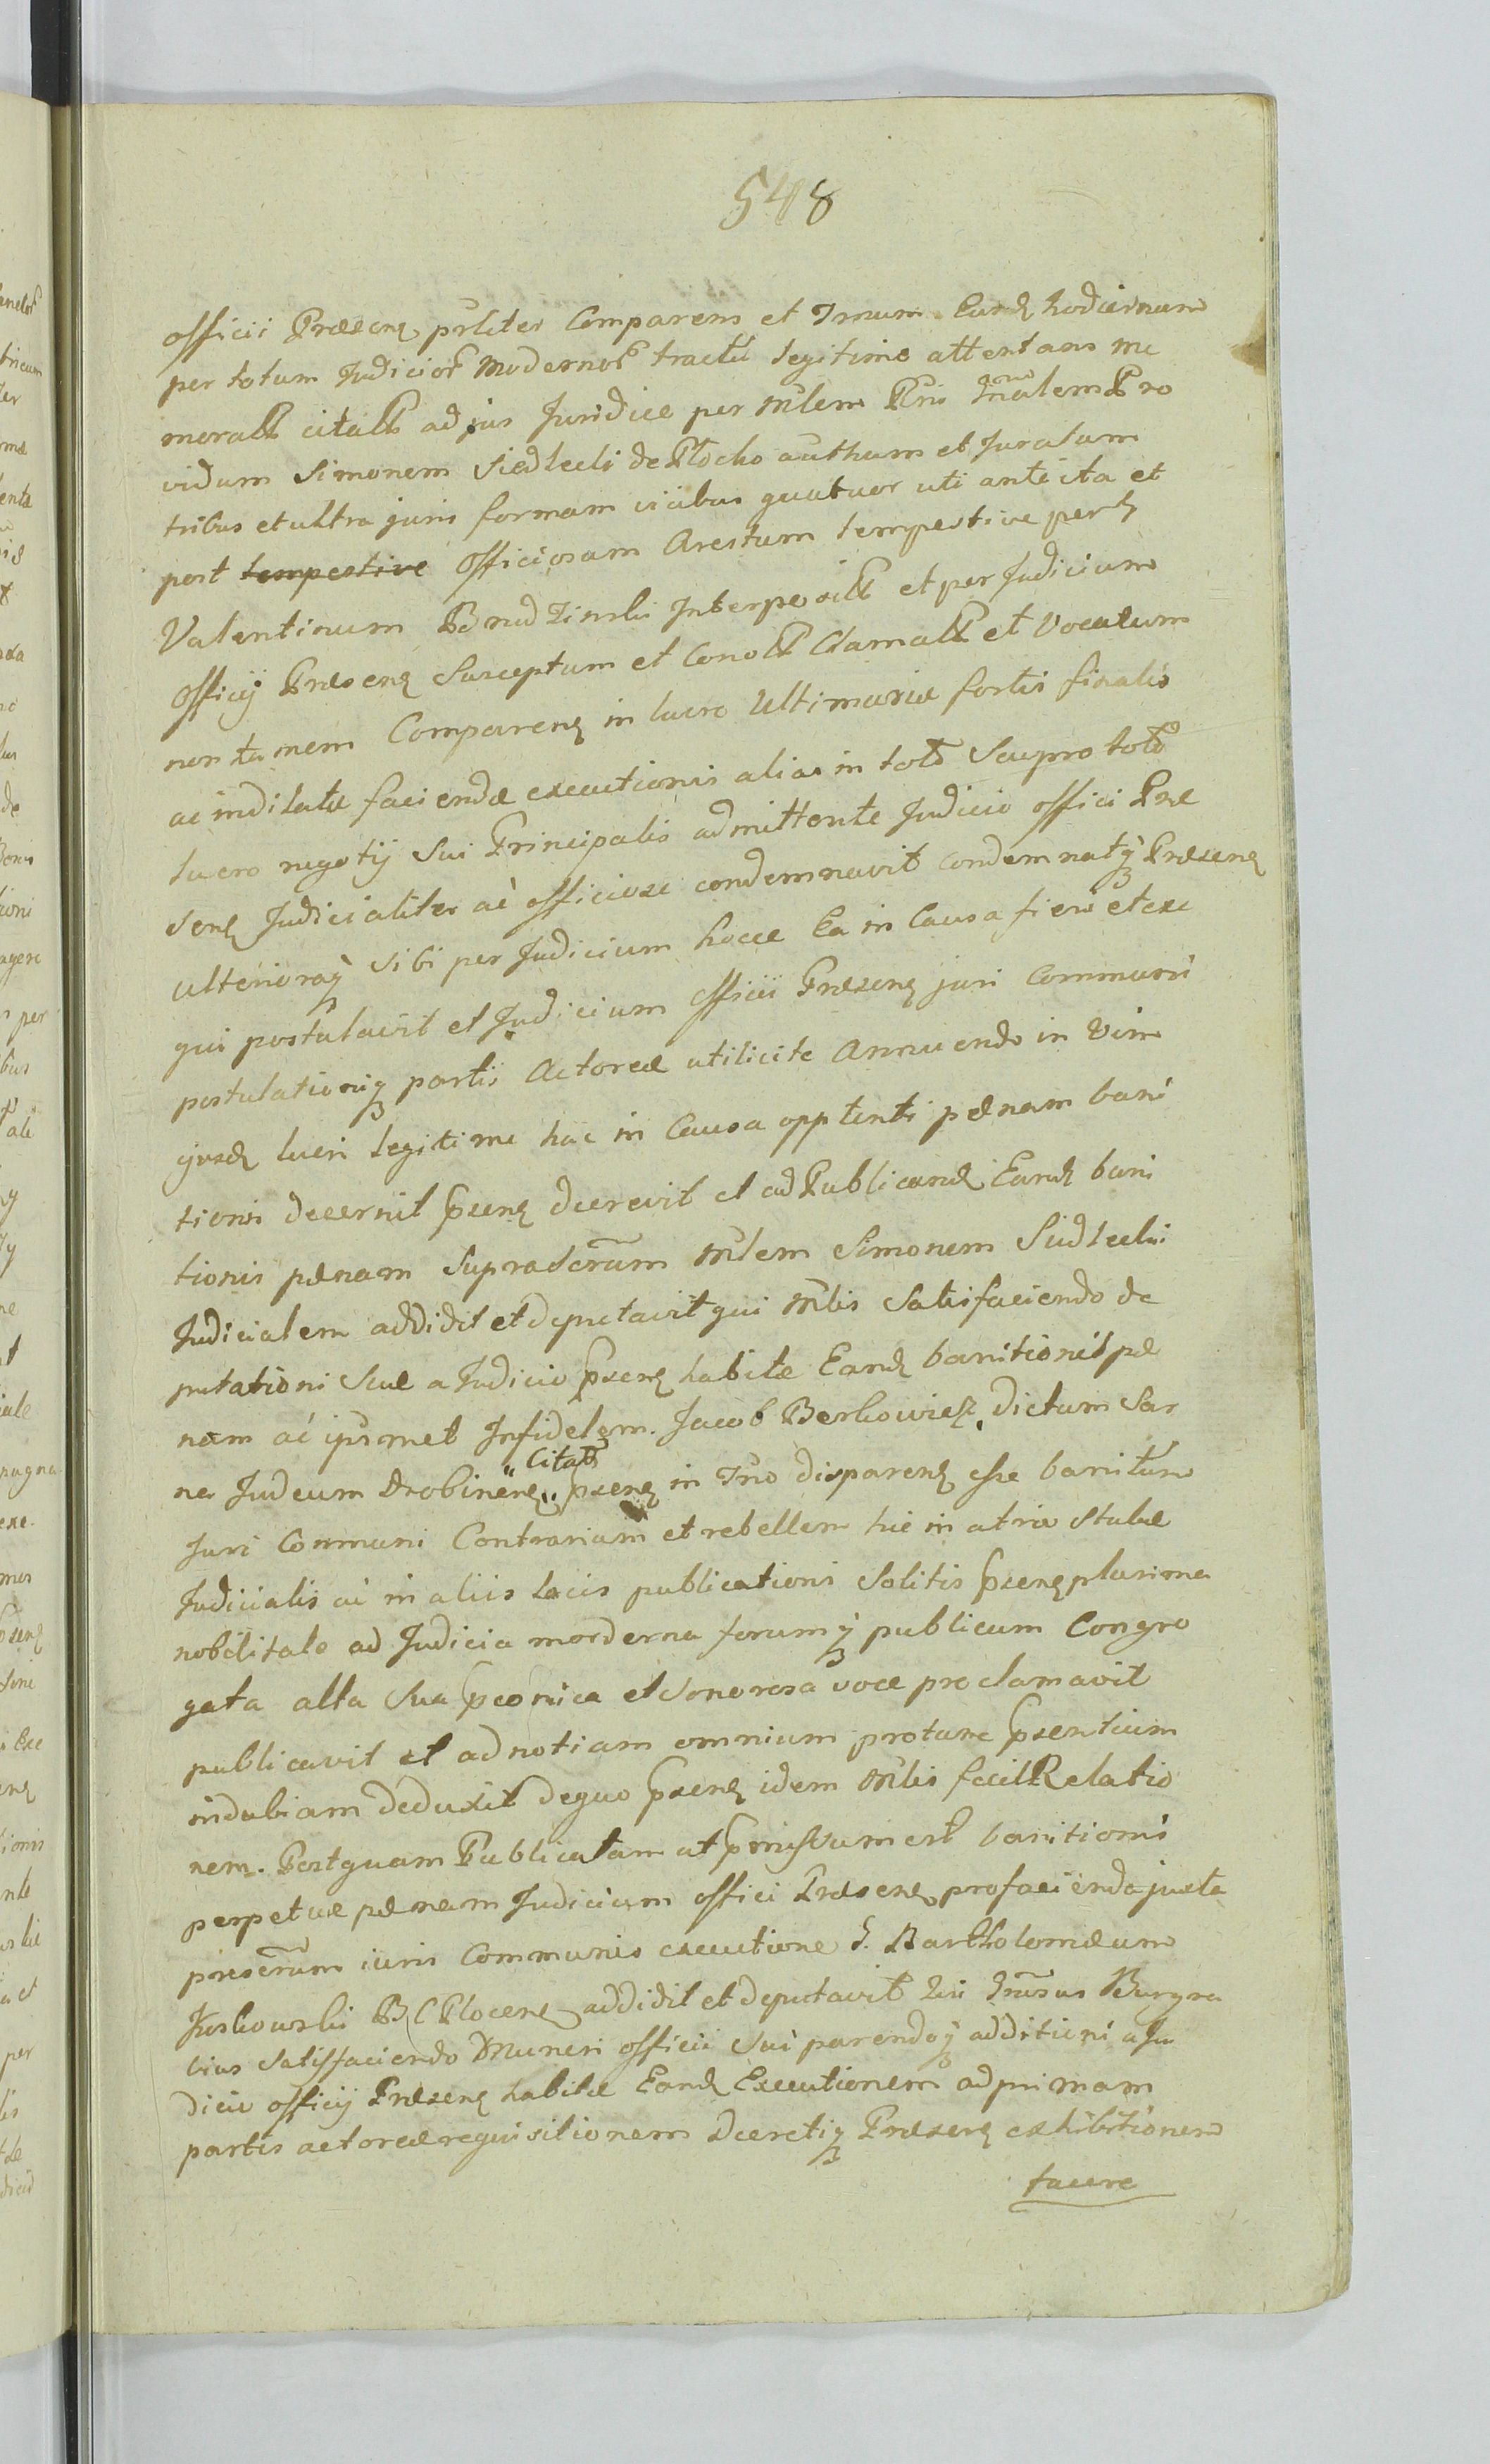 548
officii Præsenȝ prlter Comparens et Tmum Eundȝ hodiernum
per totum Judicior Modernor tractu legitime attentans me
morat citat ad jus Juridice per Mlem Rni Gnalem Pro
vidum Simonem Siedlecki de Plocko authum et Juratum
tribus et ultra juris formam vicibus quatuor uti ante ita et
post tempestive Officiosam Arestum tempestive per
Valentinum Brudzinski Interposit et per Judicium
Officij Præsenȝ Susceptum et Clamat et Vocatum
non tamen Comparenȝ in lucro Ultimariæ fortis finalis
ac indilatæ faciendæ executionis alias in toto Seu pro toto
lucro negotij sui Principalis admittente Judicio offici Præ
senȝ Judicialiter ac officiose condemnavit Condemnatqȝ Præsenȝ
ulterioraqȝ sibi per Judicium hocce Ea in Causa fieri et exe
qui postulavit et Judicium officii Præsenȝ juri Communi
postulationiqȝ partis Actoreæ utilicite Annuendo in Vim
ejusdȝ lucri legitime hac in Causa opptenti pænam bani
tionis decernit Psenȝ decrevit et ad Publicandȝ Eandȝ bani
tionis pænam Suprascrum Mlem Simonem Siedlecki
Judicialem addidit et Deputavit qui Mlis Satisfaciendo de
putationi Suæ a Judicio Psenȝ habitæ Eandȝ banitionis pæ
nam ac ipsmet Infidelem Jacob Berkowicz dictum Sar
na Judeum Drobinenȝ Citat psenȝ in Tno disparenȝ esse banitum
Juri Communi Contrarium et rebellem hic in atrio Stubæ
Judicialis ac in aliis locis publicationi Solitis Psenȝ plurima
nobilitate ad Judicia morderna forumqȝ publicum Congre
gata alta Sua et Sonorosa voce proclamavit
publicavit et ad notiam omnium protunc Psentium
indubiam deduxit de quo Psenȝ idem Mlis fecit Relatio
nem. Postquam Publicatam ut est banitionis
perpetuæ pænam Judicium offici Præsenȝ pro facienda juxta
præscrum iuris Communis executione G. Bartholomæum
Koskowski B C Plocenȝ addidit et deputavit Qui Gnrsus Burgra
bius Satisfaciendo Muneri officii Sui parendoqȝ additioni a Ju
dicio officij Præsenȝ habitæ Eandȝ Executionem ad primam
partis actoreæ requisitionem Decretiqȝ Præsenȝ exhibitionem
facere